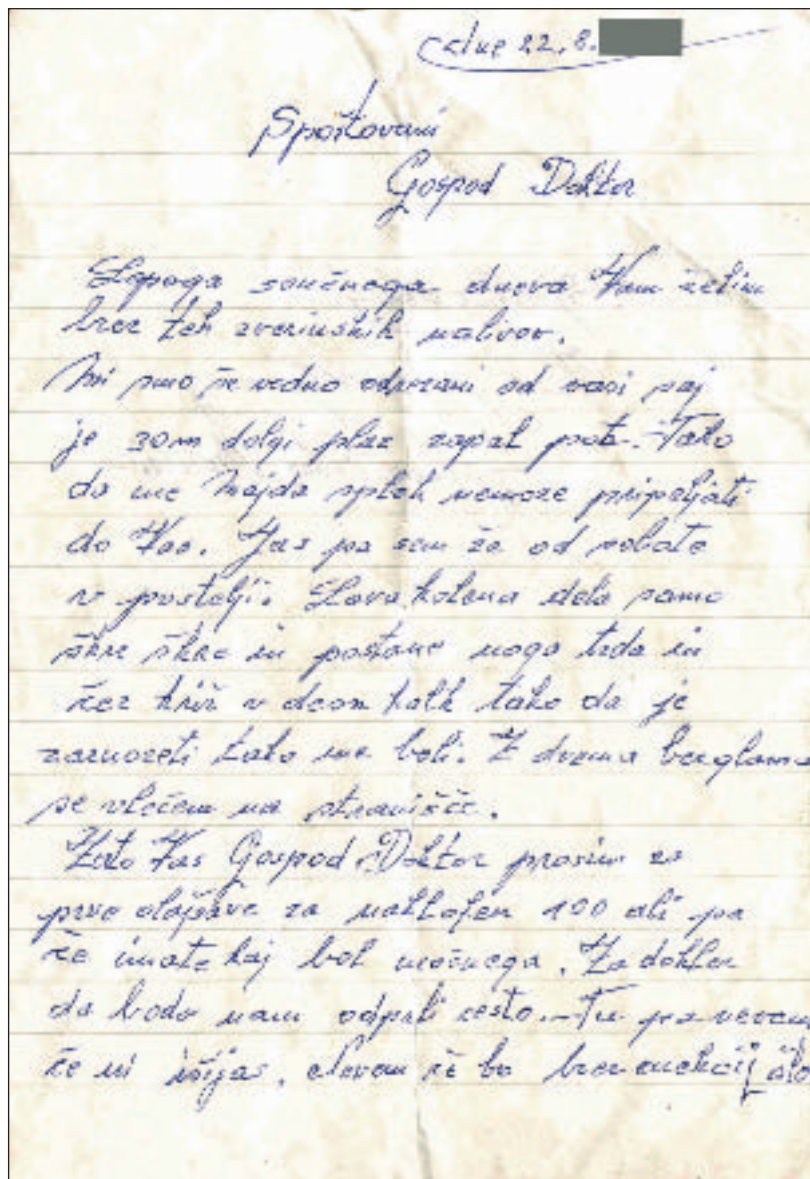 dne 22.8.
Spoštovani
Gospod Doktor
Lepega sončnega dneva Vam želim
brez teh zverinskih nalivov.
Mi smo še vedno odrezani od vasi saj
je 30m dolgi plaz zapal pot. Tako
da me Majda spleh nemore pripeljati
do Vas. Jas pa sem že od sobote
v postelji. Levo koleno dela samo
škrc škrc in postane noga trda in
čez križ v desn kolk tako da je
zaznoreti tako me boli. Z dvema berglama
se vlečem na stranišče.
Zato Vas Gospod Doktor prosim za
prvo olajšave za naklofen 100 ali pa
če imate kaj bol močnega. Za dokler
da bodo nam odprli cesto. Tu pa nevem
če ni išijas, nevem če bo brez enekcij šlo